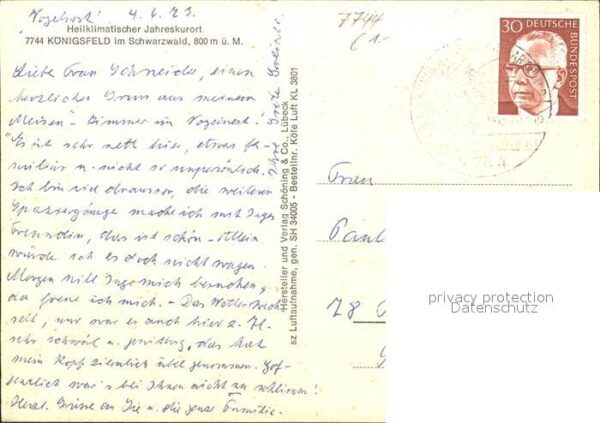 "Vogelnest" 4.6.73.
Heilklimatischer Jahreskurort
7744 KÖNIGSFELD im Schwarzwald, 800 m ü. M.
Liebe Frau Schneider, einen
herzlichen Gruss aus meinem
Meisen-Zimmer im Vogelnest!
Es ist sehr nett hier, etwas fa-
miliär u. nicht so unpersönlich.
Ich bin viel draussen, die weiteren
Spaziergänge mache ich mit Inges
Freundin, das ist schön - allein
würde ich es doch nicht wagen.
Morgen will Inge mich besuchen,
da freue ich mich. - Das Wetter
seit, nur war es auch hier z. Zt.
sehr schwül u. gewittrig, das hat
mein Kopf ziemlich übel genommen. Hof-
fentlich war's bei Ihnen nicht zu schlimm!
Herzl. Grüsse an Sie u. die ganze Familie.
Ihre Grete
Hersteller und Verlag Schöning & Co., Lübeck
sz Luftaufnahme, gen. SH 34005 - Bestellnr. Köfe Luft KL 3801
7744
30 DEUTSCHE BUNDESPOST
Frau
Paul
78
privacy protection
Datenschutz